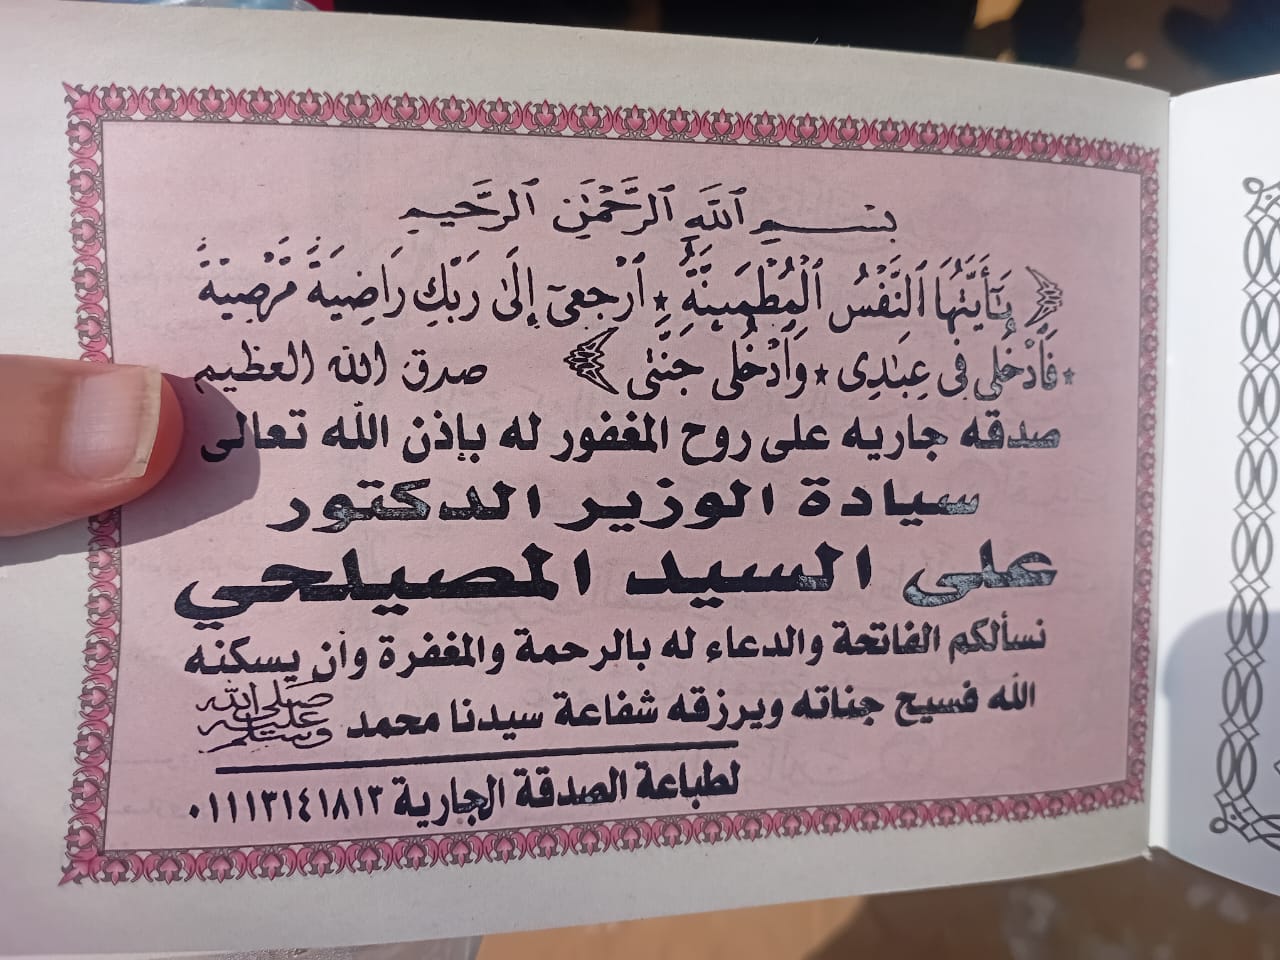 بِسْمِ ٱللَّهِ ٱلرَّحْمَٰنِ ٱلرَّحِيمِ
﴿ يَٰٓأَيَّتُهَا ٱلنَّفْسُ ٱلْمُطْمَئِنَّةُ ★ ٱرْجِعِىٓ إِلَىٰ رَبِّكِ رَاضِيَةً مَّرْضِيَّةً
★ فَٱدْخُلِى فِى عِبَٰدِى ★ وَٱدْخُلِى جَنَّتِى ﴾ صدق الله العظيم
صدقه جاريه على روح المغفور له بإذن الله تعالى
سيادة الوزير الدكتور
على السيد المصيلحي
نسألكم الفاتحة والدعاء له بالرحمة والمغفرة وأن يسكنه
الله فسيح جناته ويرزقه شفاعة سيدنا محمد صلى الله عليه وسلم
لطباعة الصدقة الجارية ٠١١١٣١٤١٨١٣